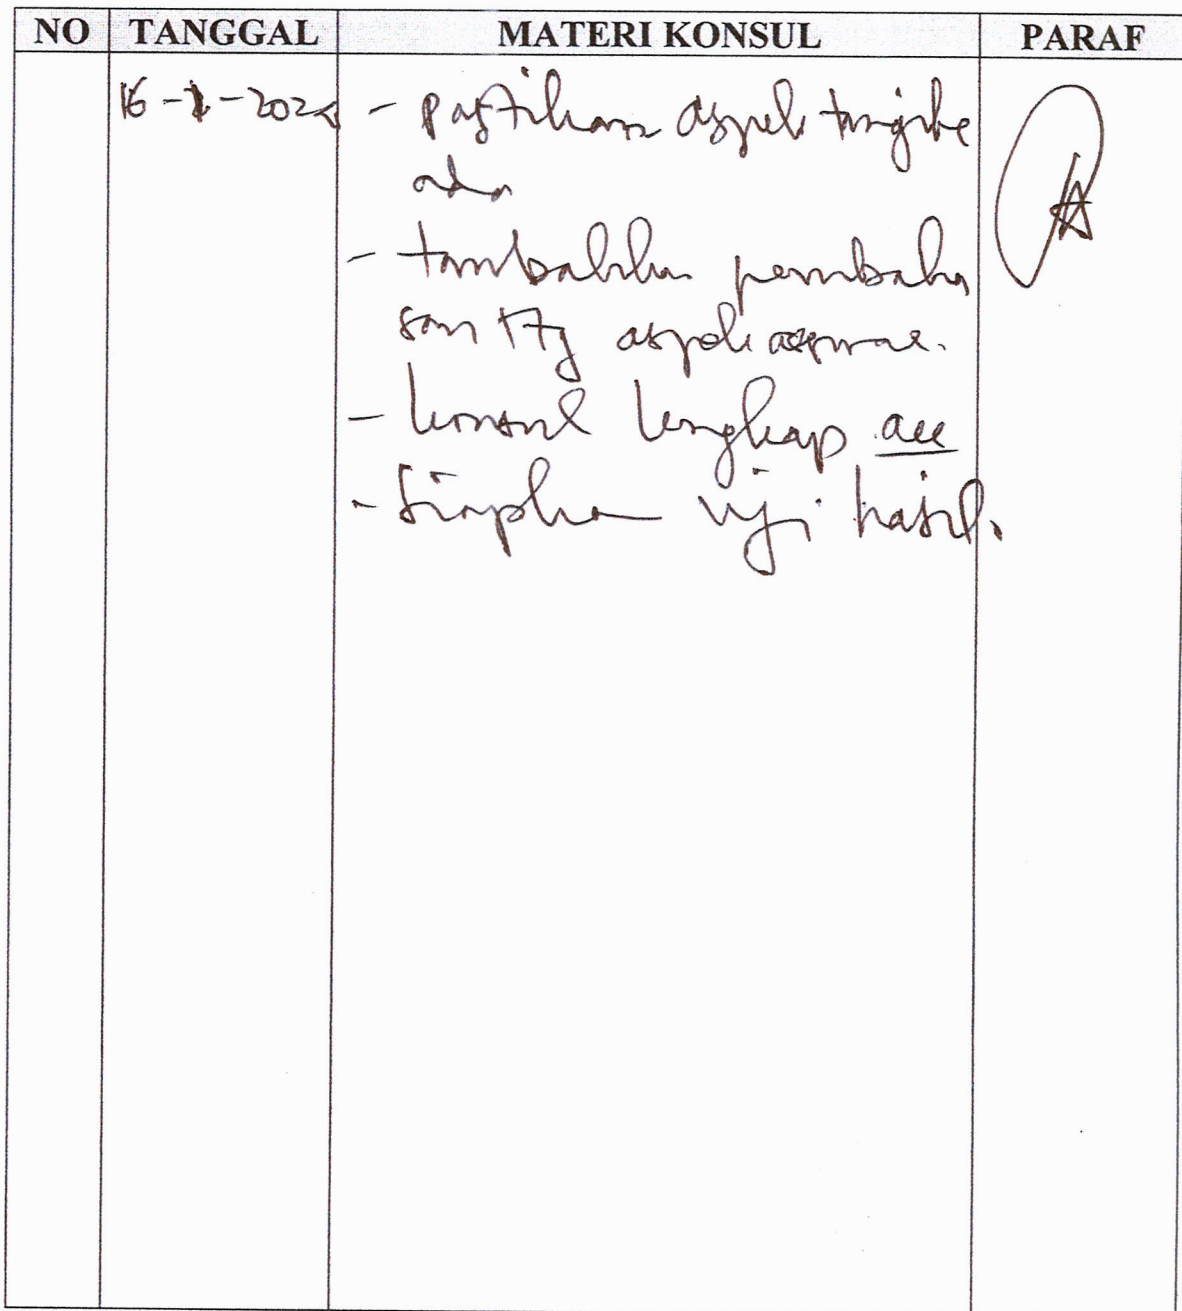 NO TANGGAL MATERI KONSUL PARAF
- pastikan aspek tangible
ada
- tambahkan pembaha
san ttg aspek
- konsul lengkap acc
- siapkan uji hasil.